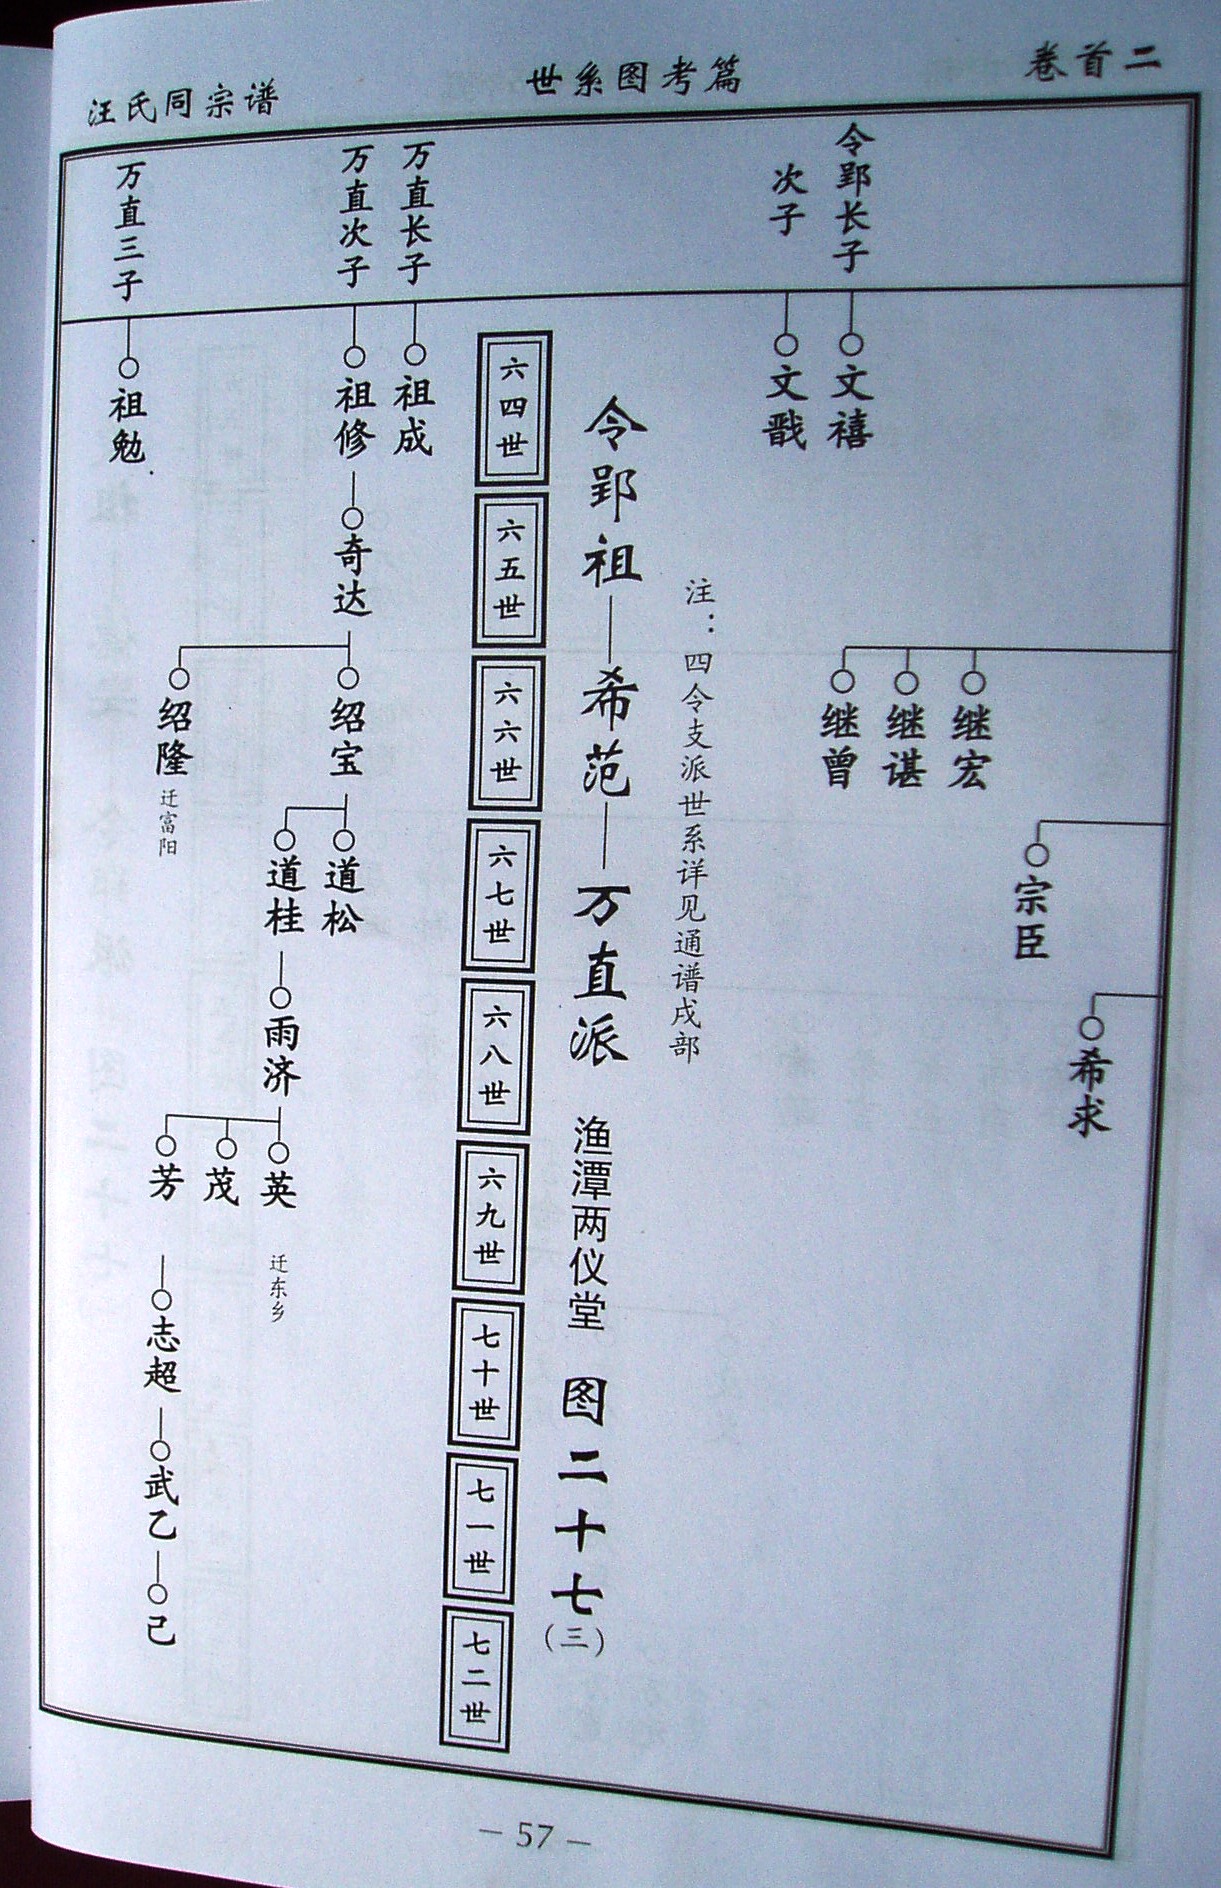 卷首二
世系图考篇
汪氏同宗谱
希求
宗臣
继宏
继谌
继曾
令郢长子
文禧
次子
文戬
注：四令支派世系详见通谱戌部
令郢祖—希范—万直派 渔潭两仪堂 图二十七(三)
六四世
六五世
六六世
六七世
六八世
六九世
七十世
七一世
七二世
万直长子
祖成
万直次子
祖修
奇达
绍宝
道松
道桂
雨济
英
迁东乡
茂
芳
志超
武乙
己
绍隆
迁富阳
万直三子
祖勉
— 57 —